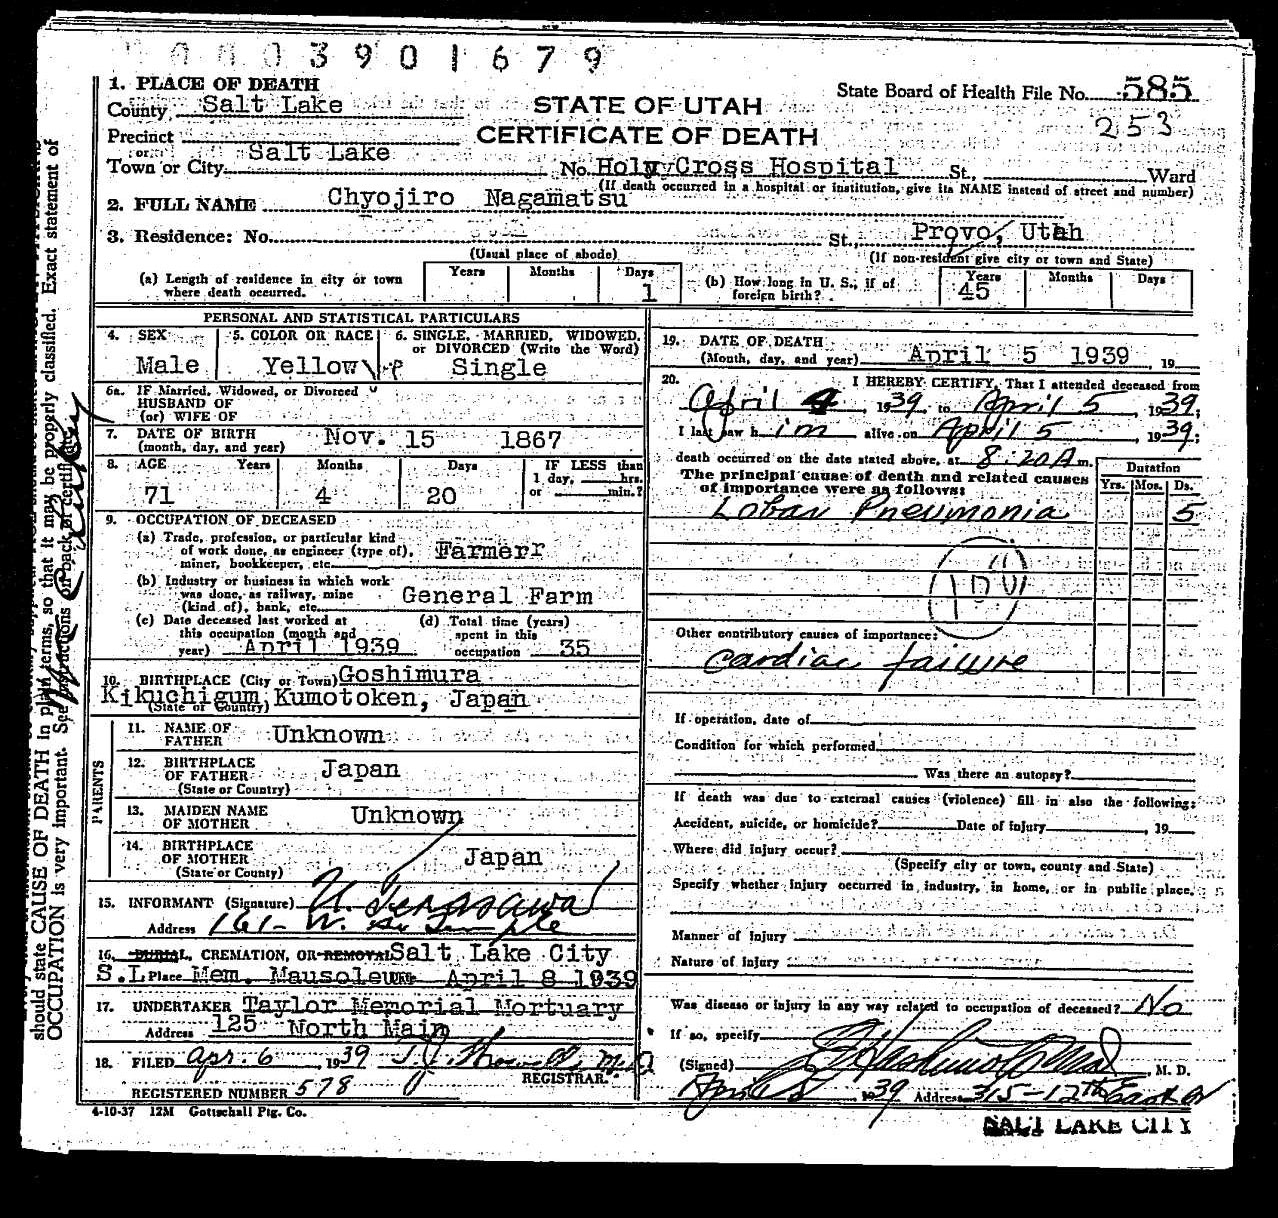 0003901679
1. PLACE OF DEATH
County Salt Lake
STATE OF UTAH
State Board of Health File No. 585
CERTIFICATE OF DEATH
253
Precinct
or
Town or City Salt Lake No. Holy Cross Hospital St., Ward
(If death occurred in a hospital or institution, give its NAME instead of street and number)
2. FULL NAME Chyojiro Nagamatsu
3. Residence: No. St., Provo, Utah
(Usual place of abode) (If non-resident give city or town and State)
(a) Length of residence in city or town where death occurred. Years Months Days 1
(b) How long in U. S., if of foreign birth? Years 45 Months Days
PERSONAL AND STATISTICAL PARTICULARS
4. SEX Male
5. COLOR OR RACE Yellow
6. SINGLE, MARRIED, WIDOWED, or DIVORCED (Write the Word) Single
6a. IF Married, Widowed, or Divorced
HUSBAND OF
(or) WIFE OF
7. DATE OF BIRTH (month, day, and year) Nov. 15 1867
8. AGE Years 71 Months 4 Days 20 IF LESS than 1 day, hrs. or min.?
9. OCCUPATION OF DECEASED
(a) Trade, profession, or particular kind of work done, as engineer (type of), miner, bookkeeper, etc. Farmerr
(b) Industry or business in which work was done, as railway, mine (kind of), bank, etc. General Farm
(c) Date deceased last worked at this occupation (month and year) April 1939
(d) Total time (years) spent in this occupation 35
10. BIRTHPLACE (City or Town) Goshimura
(State or Country) Kikuchigum, Kumotoken, Japan
PARENTS
11. NAME OF FATHER Unknown
12. BIRTHPLACE OF FATHER (State or Country) Japan
13. MAIDEN NAME OF MOTHER Unknown
14. BIRTHPLACE OF MOTHER (State or County) Japan
15. INFORMANT (Signature) U. Terasawa
Address 161- W. So Temple
16. BURIAL, CREMATION, OR REMOVAL Salt Lake City
S.L Place Mem. Mausoleum April 8 1939
17. UNDERTAKER Taylor Memorial Mortuary
Address 125 North Main
18. FILED Apr. 6 1939
REGISTRAR.
REGISTERED NUMBER 578
4-10-37 12M Gottschall Ptg. Co.
19. DATE OF DEATH (Month, day, and year) April 5 1939, 19
20. I HEREBY CERTIFY, That I attended deceased from
April 4, 1939, to April 5, 1939;
I last saw him alive on April 5, 1939;
death occurred on the date stated above, at 8:20 A m.
The principal cause of death and related causes of importance were as follows:
Duration
Yrs. Mos. Ds.
Lobar Pneumonia 5
Other contributory causes of importance:
Cardiac failure
If operation, date of
Condition for which performed
Was there an autopsy?
If death was due to external causes (violence) fill in also the following:
Accident, suicide, or homicide? Date of injury, 19
Where did injury occur?
(Specify city or town, county and State)
Specify whether injury occurred in industry, in home, or in public place.
Manner of injury
Nature of injury
Was disease or injury in any way related to occupation of deceased? No
If so, specify
(Signed) M. D.
April 5 1939 Address 315-12th East
SALT LAKE CITY
should state CAUSE OF DEATH in plain terms, so that it may be properly classified. Exact statement of
OCCUPATION is very important. See instructions on back of certificate.